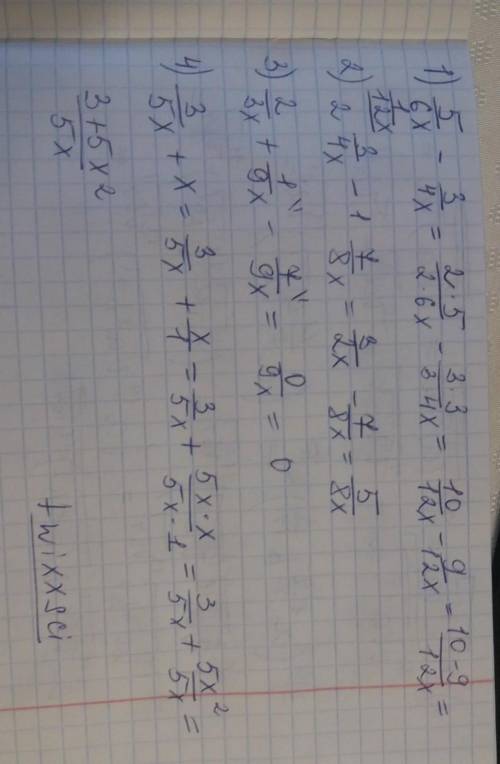 1) 5/6x - 3/4x = 2·5/2·6x - 3·3/3·4x = 10/12x - 9/12x = 10-9/12x =
1/12x
2) 2 3/4x - 1 7/8x = 3/2x - 7/8x = 5/8x
3) 2/3x + 1"/9x - 7"/9x = 0/9x = 0
4) 3/5x + x = 3/5x + x/1 = 3/5x + 5x·x/5x·1 = 3/5x + 5x²/5x =
3+5x²/5x
twixxsei